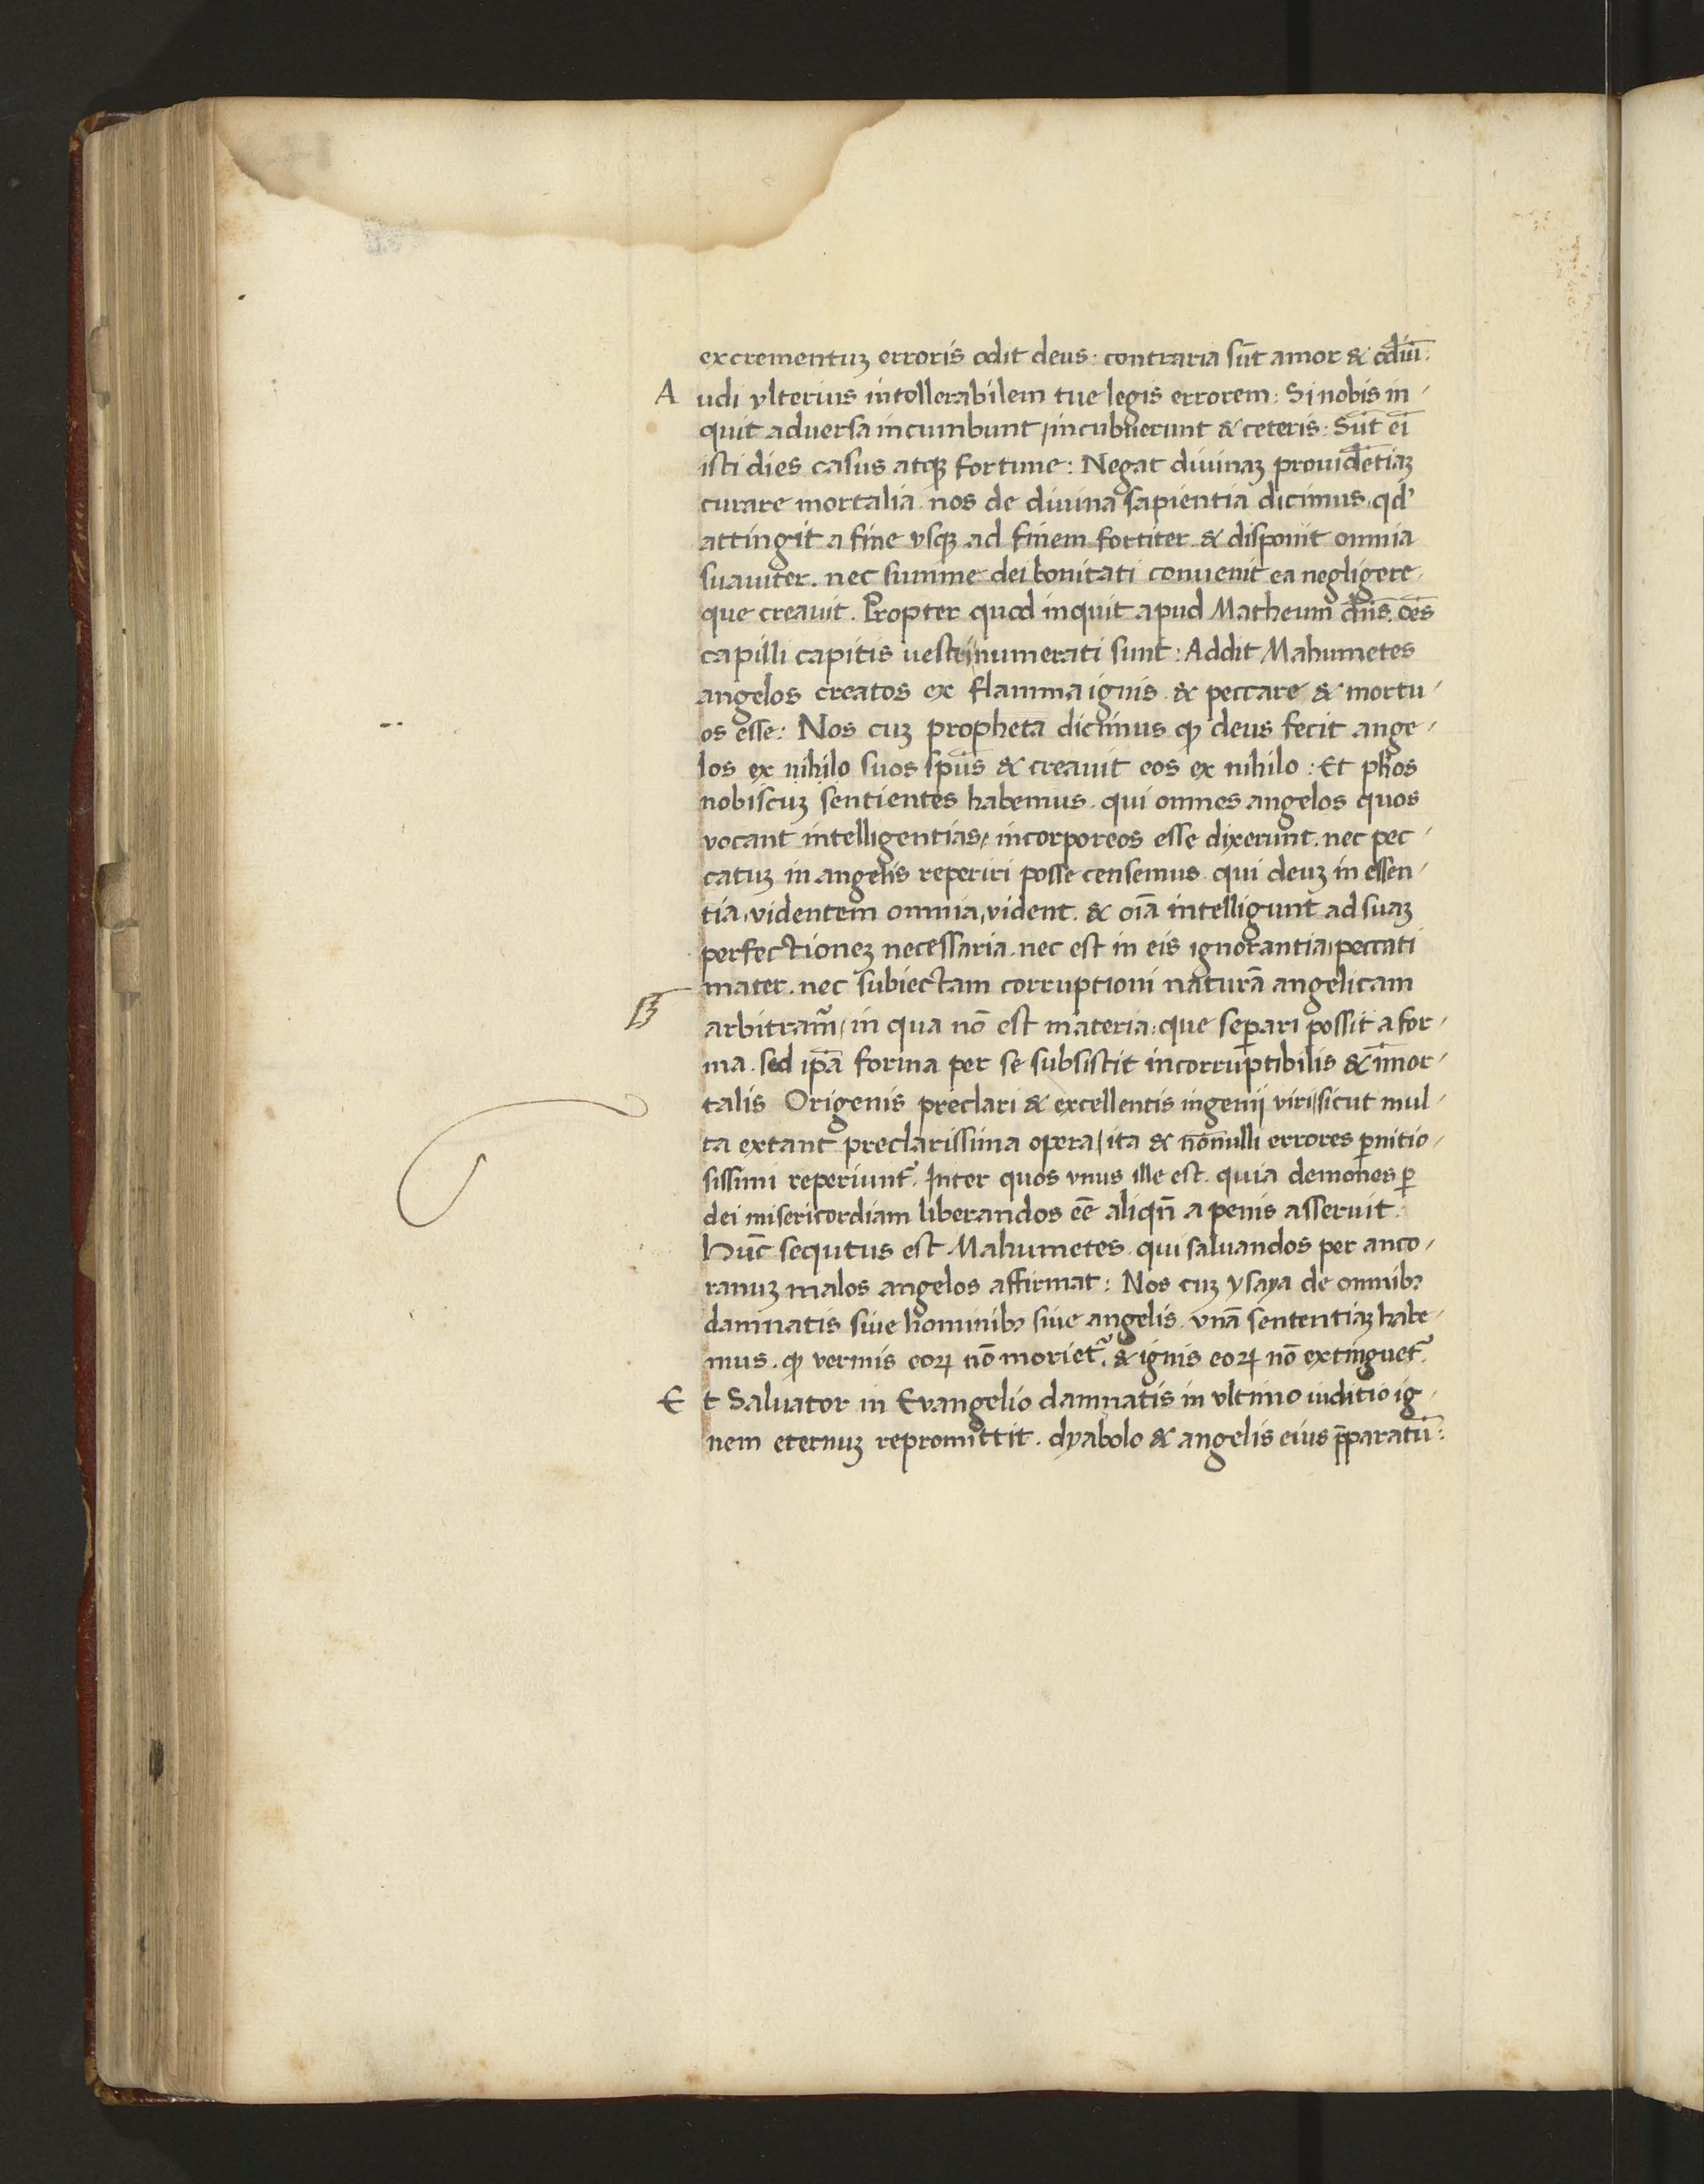 excrementuꝫ erroris odit deus: contraria sūt amor & odiū:
Audi vlterius intollerabilem tue legis errorem: Si nobis in-
quit aduersa incumbunt, incubuerunt & ceteris: Sūt ei
isti dies casus atqꝫ fortune: Negat diuinaꝫ prouidētiaꝫ
curare mortalia. nos de diuina sapientia dicimus. qd'
attingit a fine vsqꝫ ad finem fortiter & disponit omnia
suauiter. nec summe dei bonitati conuenit ea negligere
que creauit. Propter quod inquit apud Matheum dn̄s. oēs
capilli capitis uestri numerati sunt: Addit Mahumetes
angelos creatos ex flamma ignis. & peccare & mortu-
os esse: Nos cuꝫ propheta dicimus ꝙ deus fecit ange-
los ex nihilo suos sp̄us & creauit eos ex nihilo: Et ph̄os
nobiscuꝫ sentientes habemus. qui omnes angelos quos
vocant intelligentias, incorporeos esse dixerunt. nec pec-
catuꝫ in angelis reperiri posse censemus. qui deuꝫ in essen-
tia, videntem omnia, vident. & oīa intelligunt ad suaꝫ
perfectioneꝫ necessaria. nec est in eis ignorantia, peccati
mater. nec subiectam corruptioni naturā angelicam
B arbitram̄, in qua nō est materia: que sepꝑari possit a for-
ma. sed ip̄a forma per se subsistit incorruptibilis & īmor-
talis Origenis preclari & excellentis ingenij viri, sicut mul-
ta extant preclarissima opera, ita & nōnulli errores ꝑnitio-
sissimi reperiunt̄. Inter quos vnus ille est. quia demones ꝑ
dei misericordiam liberandos eē aliqn̄ a penis asseruit.
Hūc sequtus est Mahumetes. qui saluandos per anco-
ranuꝫ malos angelos affirmat: Nos cuꝫ ysaya de omnibꝫ
damnatis siue hominibꝫ siue angelis. vnā sententiaꝫ habe-
mus. ꝙ vermis eoꝝ nō moriet̄. & ignis eoꝝ nō extinguet̄.
Et Saluator in Evangelio damnatis in vltimo iuditio ig-
nem eternuꝫ repromittit. dyabolo & angelis eius p̄paratū: